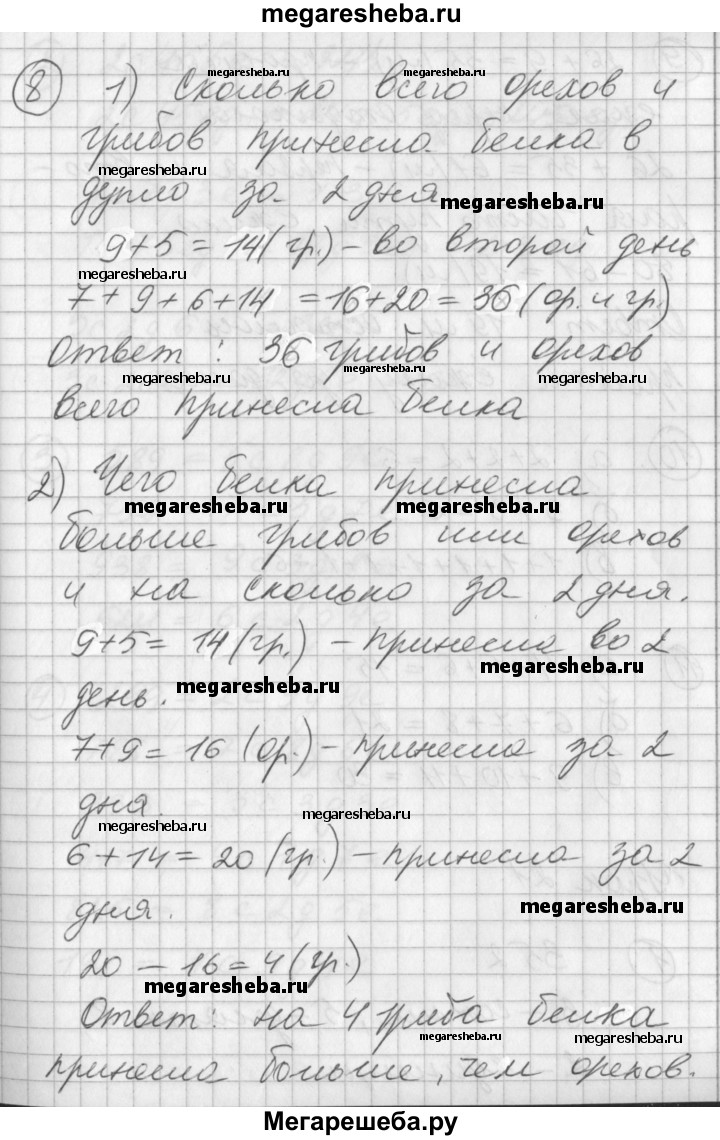 megaresheba.ru
megaresheba.ru megaresheba.ru
8 1) Сколько всего орехов и
грибов принесла белка в
megaresheba.ru
дупло за 2 дня
megaresheba.ru
9+5=14(гр.) – во второй день
megaresheba.ru
7+9+6+14 =16+20=36(ор. и гр.)
Ответ: 36 грибов и орехов
megaresheba.ru megaresheba.ru megaresheba.ru
всего принесла белка
2) Чего белка принесла
megaresheba.ru megaresheba.ru
больше грибов или орехов
и на сколько за 2 дня.
9+5= 14(гр.) – принесла во 2
megaresheba.ru
день.
megaresheba.ru
7+9= 16 (ор.) – принесла за 2
дня.
megaresheba.ru megaresheba.ru
6+14=20(гр.) – принесла за 2
дня.
megaresheba.ru
20 – 16=4(гр.)
megaresheba.ru
Ответ: на 4 гриба белка
megaresheba.ru megaresheba.ru
принесла больше, чем орехов.
Мегарешеба.ру